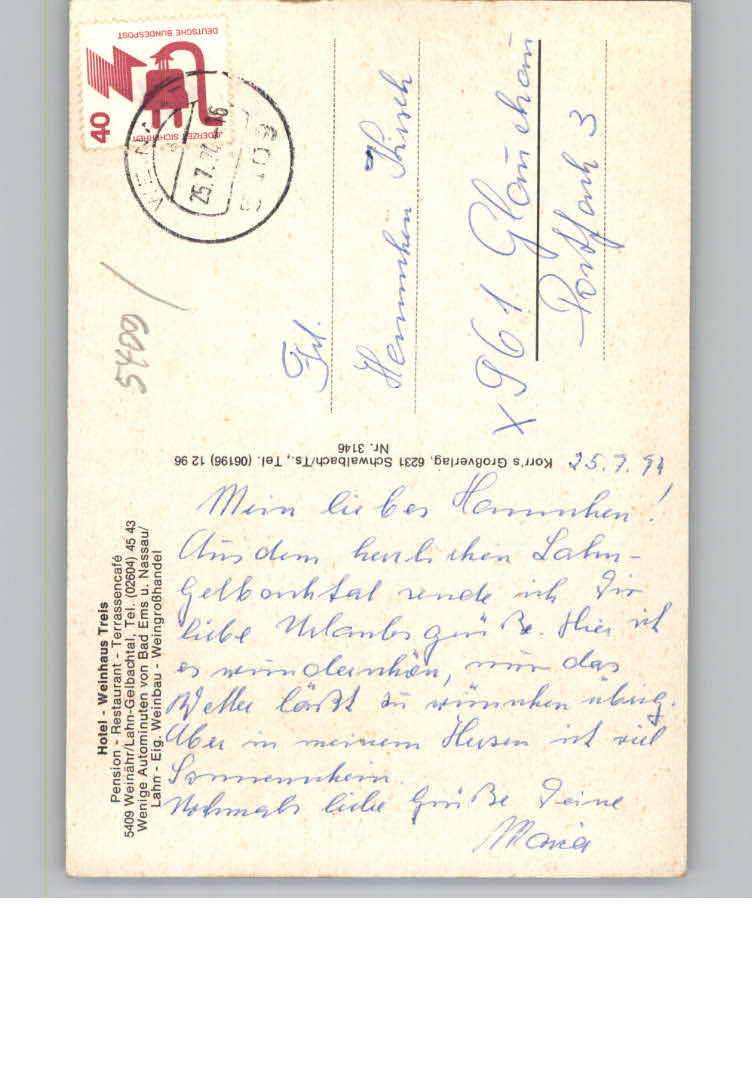 Hotel - Weinhaus Treis
Pension - Restaurant - Terrassencafé
5409 Weinähr/Lahn-Gelbachtal, Tel. (02604) 45 43
Wenige Autominuten von Bad Ems u. Nassau/
Lahn - Eig. Weinbau - Weingroßhandel
25.7.74
Mein liebes Hannchen!
Aus dem herrlichen Lahn-
Gelbachtal sende ich Dir
liebe Urlaubsgrüße. Hier ist
es wunderschön, nur das
Wetter läßt zu wünschen übrig.
Aber in meinem Herzen ist viel
Sonnenschein.
Nochmals liebe Grüße Deine
Maria
Korr's Großverlag, 6231 Schwalbach/Ts., Tel. (06196) 12 96
Nr. 3146
5409
DEUTSCHE BUNDESPOST
40
JEDERZEIT SICHERHEIT
25.7.
5409
Frl.
Hannchen Kirsch
X 961 Glauchau
Postfach 3